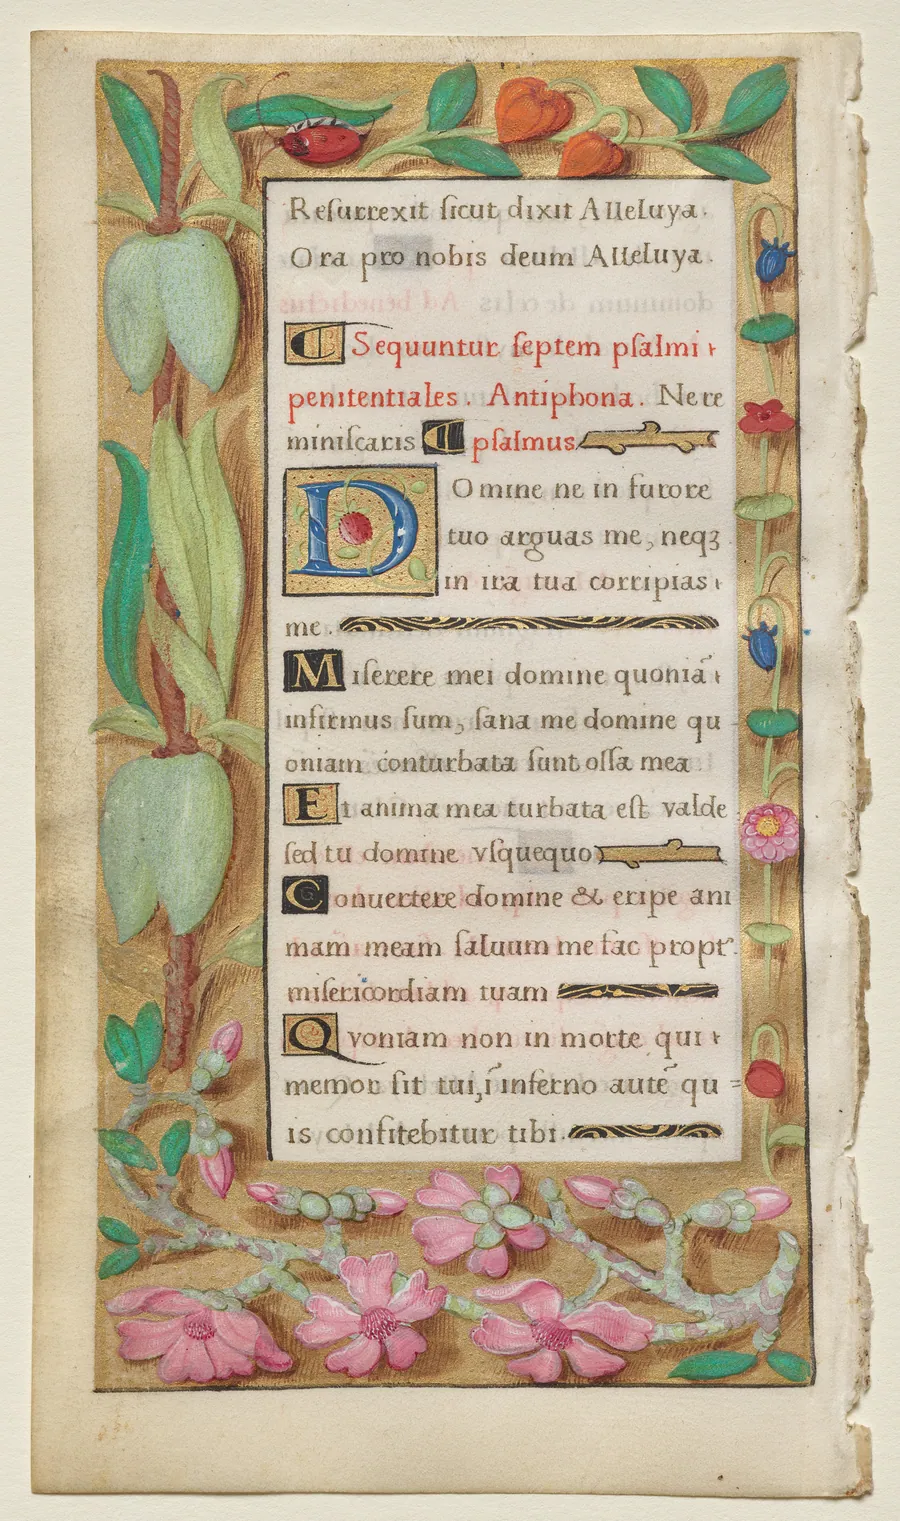 Reſurrexit ſicut dixit Alleluya.
Ora pro nobis deum Alleluya.
Sequuntur ſeptem pſalmi
penitentiales. Antiphona. Ne re
miniſcaris pſalmus
Domine ne in furore
tuo arguas me, neqꝫ
in ira tua corripias
me.
Miſerere mei domine quoniã
infirmus ſum, ſana me domine qu
oniam conturbata ſunt oſſa mea.
Et anima mea turbata eſt valde
ſed tu domine vſquequo
Conuertere domine & eripe ani
mam meam ſaluum me fac propt̃.
miſericordiam tuam
Quoniam non in morte qui
memor ſit tui, ĩ inferno autẽ qu
is confitebitur tibi.